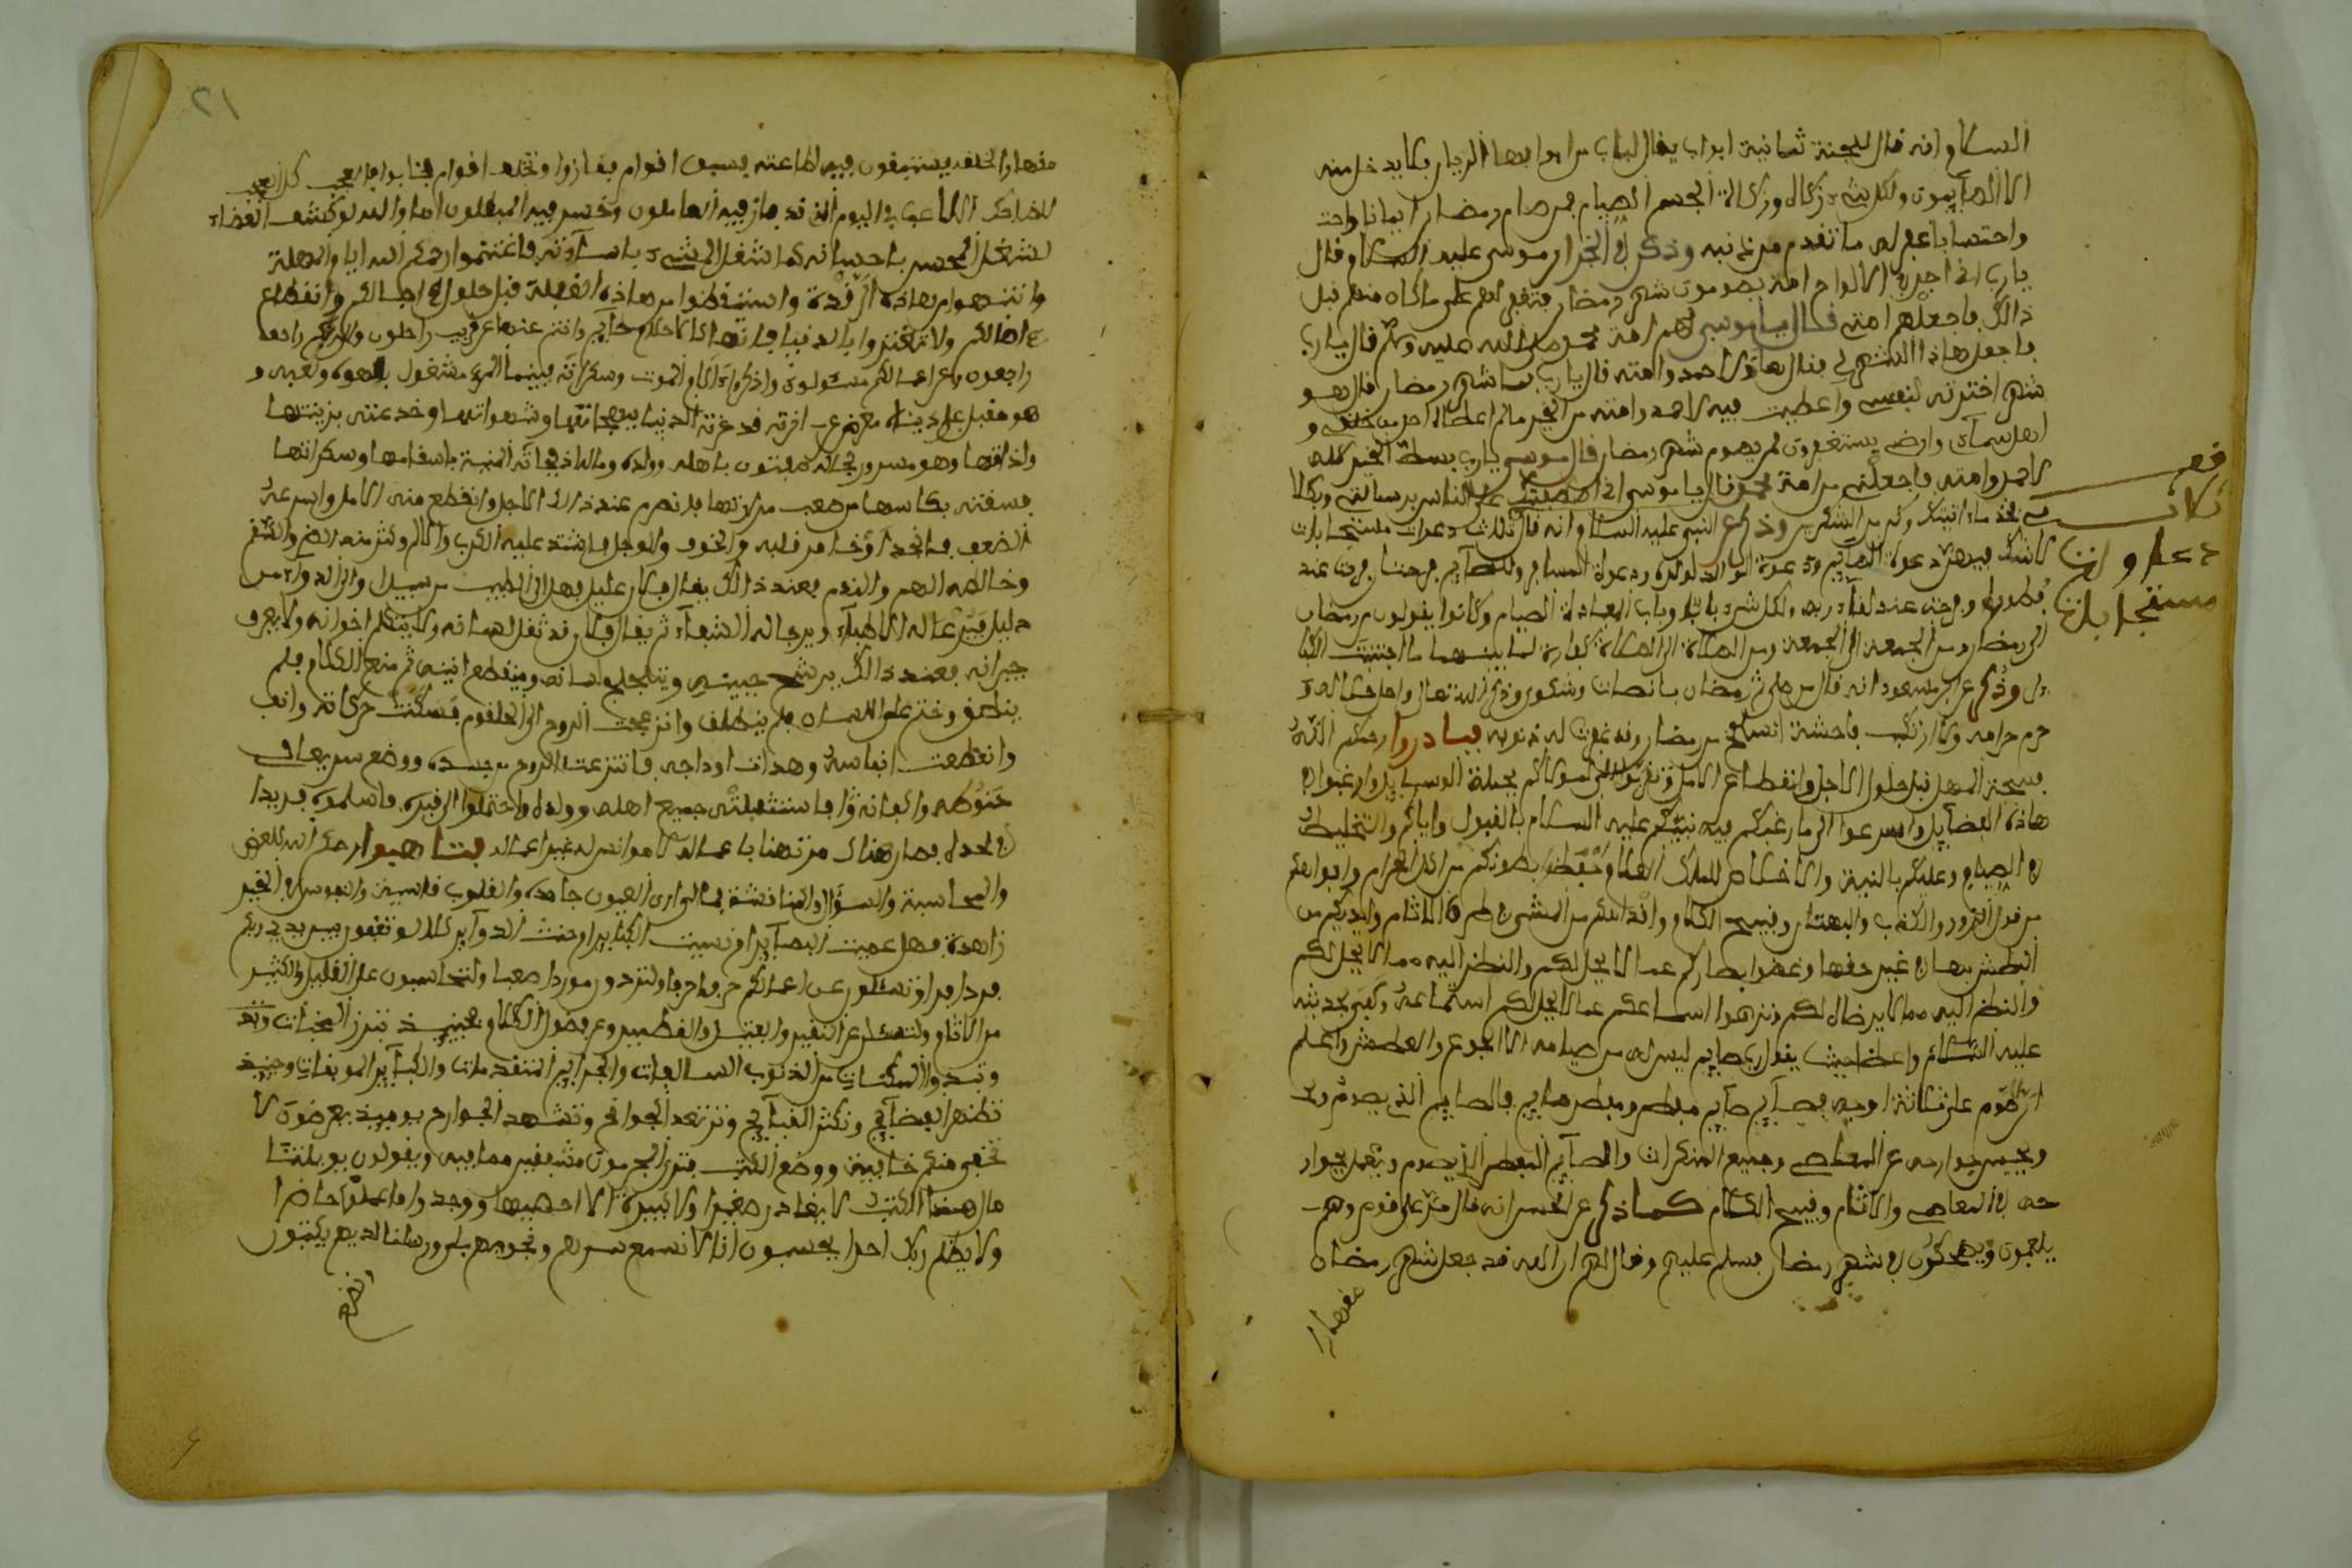 السلام انه قال للجنة ثمانية ابواب يقال لباب من ابوابها الريان لا يدخل منه
الا الصايمون ولكل شيء زكاة وزكاة الجسم الصيام فمن صام رمضان ايمانا
واحتسابا غفر له ما تقدم من ذنبه وذكر في الخبر ان موسى عليه السلام قال
يارب اني اجد في الالواح امة يصومون شهر رمضان فتغفر لهم على ما كان منهم قبل
ذالك فاجعلهم امتي فقال يا موسى تلك امة محمد صلى الله عليه وسلم قال يارب
فاجعل هاذا الشهر لي فقال هاذا لاحمد وامته قال يارب بما شهر رمضان قال هو
شهر اخترته لنفسي واعطيت فيه لاحمد وامته من الخير ما لم اعطاه احد من خلقي و
اهل سمآء وارضي يستغفرون لمن يصوم شهر رمضان قال موسى يارب بسطت الخير كله
لاحمد وامته فاجعلني من امة محمد قال يا موسى اني اصطفيتك على الناس برسالتي وبكلا
مي فخذ ما ءاتيتك وكن من الشكرين وذكر عن النبي عليه السلام انه قال ثلاث دعوات مستجابات
لا شك فيهن دعوة الصآيم ودعوة الوالد لولده ودعوة المسافر وللصآيم فرحتان فرحة عند
فطوره وفرحة عند لقاء ربه ولكل شيء باب وباب العبادة الصيام وكانوا يقولون من رمضان
الى رمضان ومن الجمعة الى الجمعة ومن الصلاة الى الصلاة كفارة لما بينهما ما اجتنبت الكبا
ير وذكر عن ابن مسعود انه قال من صلى في رمضان بانصات وسكون وذكر الله تعالى واحل حلاله و
حرم حرامه ولا ارتكب فاحشة انسلخ من رمضان وقد غفرت له ذنوبه فبادروا رحمكم الله
فسحة المهل قبل حلول الاجل وانقطاع الامل وتقربوا الى مولاكم بجملة الوسايل وارغبوا في
هاذه الفضايل واسرعوا الى ما رغبكم فيه نبيكم عليه السلام بالقبول واياكم والتخليط
في الصيام وعليكم بالنية والاخلاص للملك العلام وحفظ بطونكم من اكل الحرام وافواهكم
من قول الزور والكذب والبهتان وقبيح الكلام واقدامكم من المشي في طرق الاثام وايديكم من
البطش بها في غير حقها وغضوا ابصاركم عما لا يحل لكم والنظر اليه مما لا يحل لكم
والنظر اليه مما لا يرضاه لكم ونزهوا اسماعكم عما لا يحل لكم استماعه وكفى بحديثه
عليه السلام واعظا حيث يقول رب صايم ليس له من صيامه الا الجوع والعطش واعلم
ان الصوم على ثلاثة اوجه فصآيم صآيم مفطر ومفطر صايم فالصايم الذي يصوم
ويحبس جوارحه عن المعاصي وجميع المنكرات والصآيم المفطر الذي يصوم ويعمل بجوار
حه في المعاصي والاثام وقبيح الكلام كما ذكر عن الحسن انه قال مر على قوم وهم
يلعبون ويضحكون في شهر رمضان فسلم عليهم وقال لهم ان الله قد جعل شهر رمضان
مضمارا
قف
ثلاث
دعاوات
مستجابات
٢١
مضمارا لخلقه يستبقون فيه لطاعته فسبق اقوام ففازوا وتخلف اقوام فخابوا فالعجب كل العجب
للضاحك اللاعب في اليوم الذي قد فاز فيه العاملون وخسر فيه المبطلون اما والله لو كشف الغطاء
لشغل المحسن باحسانه كما شغل المسيء باساءته فاغتنموا رحمكم الله ايام المهلة
وانتبهوا من هاذه الرقدة واستيقظوا من هاذه الغفلة قبل حلول اجالكم وانقطاع
امالكم ولا تغتروا بالدنيا فانها كاحلام نايم وانتم عنها عن قريب راحلون والى ربكم
راجعون وعن اعمالكم مسئولون واذكروا ايام الموت وسكراته فبينما المرء مشغول بلهوه ولعبه و
هو مقبل على دنياه معرض عن اخرته قد غرته الدنيا ببهجاتها وشهواتها وخدعته بزينتها
ولذاتها وهو مسرور مفتون باهله وولده وماله اذ فجاته المنية باسقامها وسكراتها
فسقته بكاسها من صعب مرارتها فانصرم عند ذالك الاجل وانقطع منه الامل واسرع
الضعف في الجسد وخامر قلبه الخوف والوجل واشتد عليه الكرب والالم وكثر منه الضر والسقم
وخالطه الهم والندم فعند ذالك يقال فلان عليل فهل الى الطبيب من سبيل والى الدواء من
دليل فيدعا له الاطباء ويرجا له الشفاء ثم يقال فلان قد ثقل لسانه ولا يكلم اخوانه ولا يعرف
جيرانه فعند ذالك يرشح جبينه ويتلجلج لسانه وينقطع انينه ثم منع الكلام فلم
ينطق وختم على اللسان فلم ينطلق وانزعجت الروح الى الحلقوم فسكنت حركاته
وانقطعت انفاسه وهدات اوداجه فانتزعت الروح من جسده ووضع سريعا في
حنوطه واكفانه فاستقبله جميع اهله وولده واحتملوا الى قبره فاسلموه فريدا
في لحده فصار هناك مرتهنا باعماله لا مؤانس له غير اعماله فتاهبوا رحمكم الله للعرض
والمحاسبة والسؤال والمناقشة فمالي ارى العيون جامدة والقلوب قاسية والنفوس في الخير
زاهدة فهل عميت البصآير او نسيت الكباير او خبثت السرآير كلا لتوقفون بين يدي ربكم
فردا فردا ولتسئلون عن اعمالكم حرفا حرفا ولتردون موردا صعبا ولتحاسبون على القليل والكثير
من الاثام ولتسئلن عن النقير والفتيل والقطمير وعن فضول الكلام فحينيذ تبرز المخبات
وتبدوا المكتمات من الذنوب السالفات والجراير المتقدمات والكبآير الموبقات وحينيذ
تظهر الفضآيح وتكثر القبآيح وترتعد الجوانح وتشهد الجوارح يوميذ تعرضون لا
تخفى منكم خافية ووضع الكتب فترى المجرمين مشفقين مما فيه ويقولون يويلتنا
مال هذا الكتب لا يغادر صغيرا ولا كبيرة الا احصيها ووجدوا ما عملوا حاضرا
ولا يظلم ربك احدا يحسبون انا لا نسمع سرهم ونجويهم بلى ورسلنا لديهم يكتبون